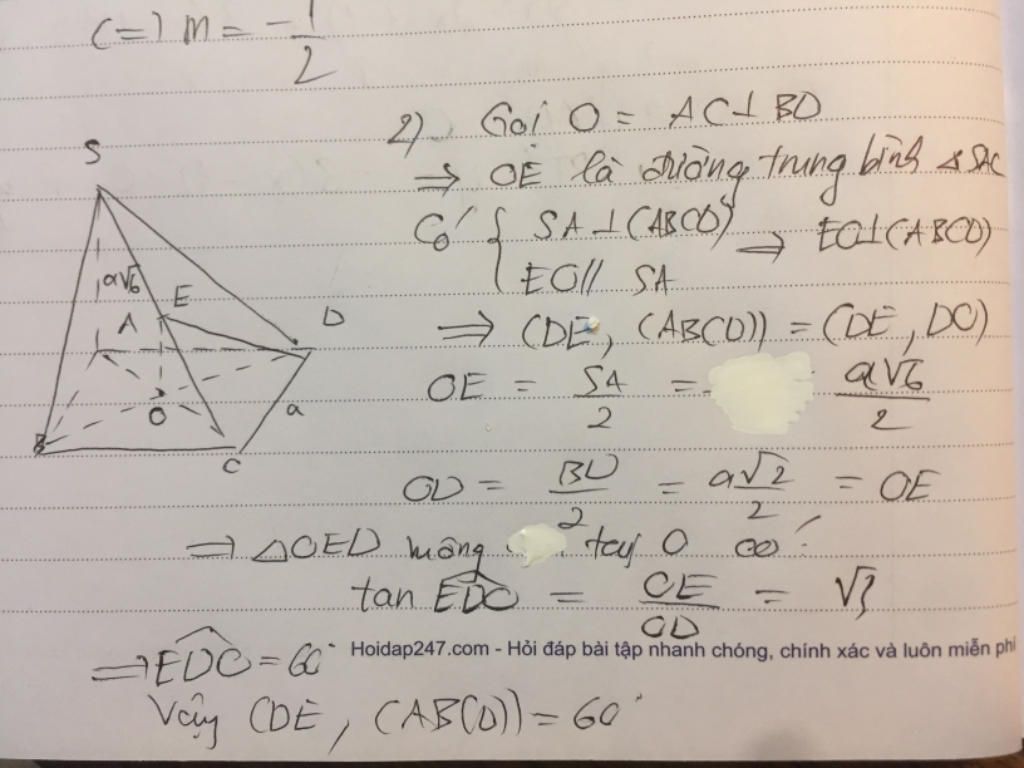 (=) m = -1/2
2) Gọi O = AC⊥BD
⇒ OE là đường trung bình ΔSAC
Có { SA⊥(ABCD) ⇒ EO⊥(ABCD)
EO // SA
⇒ (DE, (ABCD)) = (DE, DO)
OE = SA/2 = a√6/2
OD = BD/2 = a√2/2 = OE
⇒ ΔOED vuông tại O có:
tan EDO = OE/OD = √3
⇒ EDO = 60°
Hoidap247.com - Hỏi đáp bài tập nhanh chóng, chính xác và luôn miễn phí
Vậy (DE, (ABCD)) = 60°
S
a√6
E
A
D
O
a
B
C